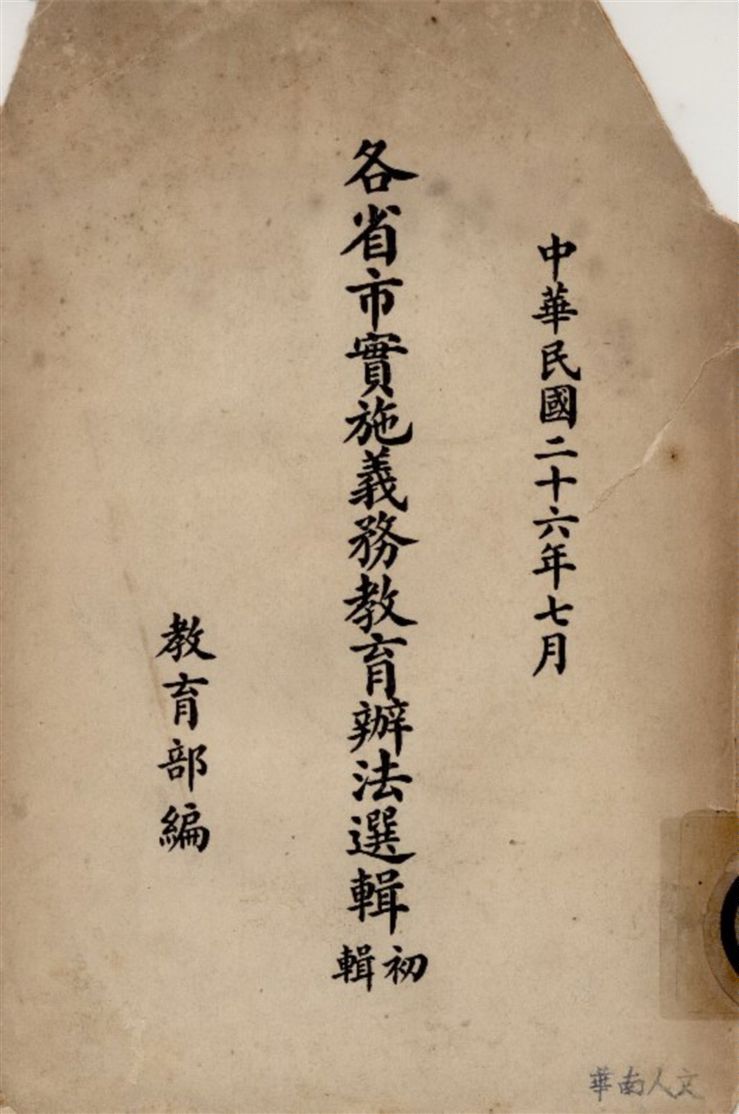 中華民國二十六年七月
各省市實施義務教育辦法選輯
初輯
教育部編
華南人文